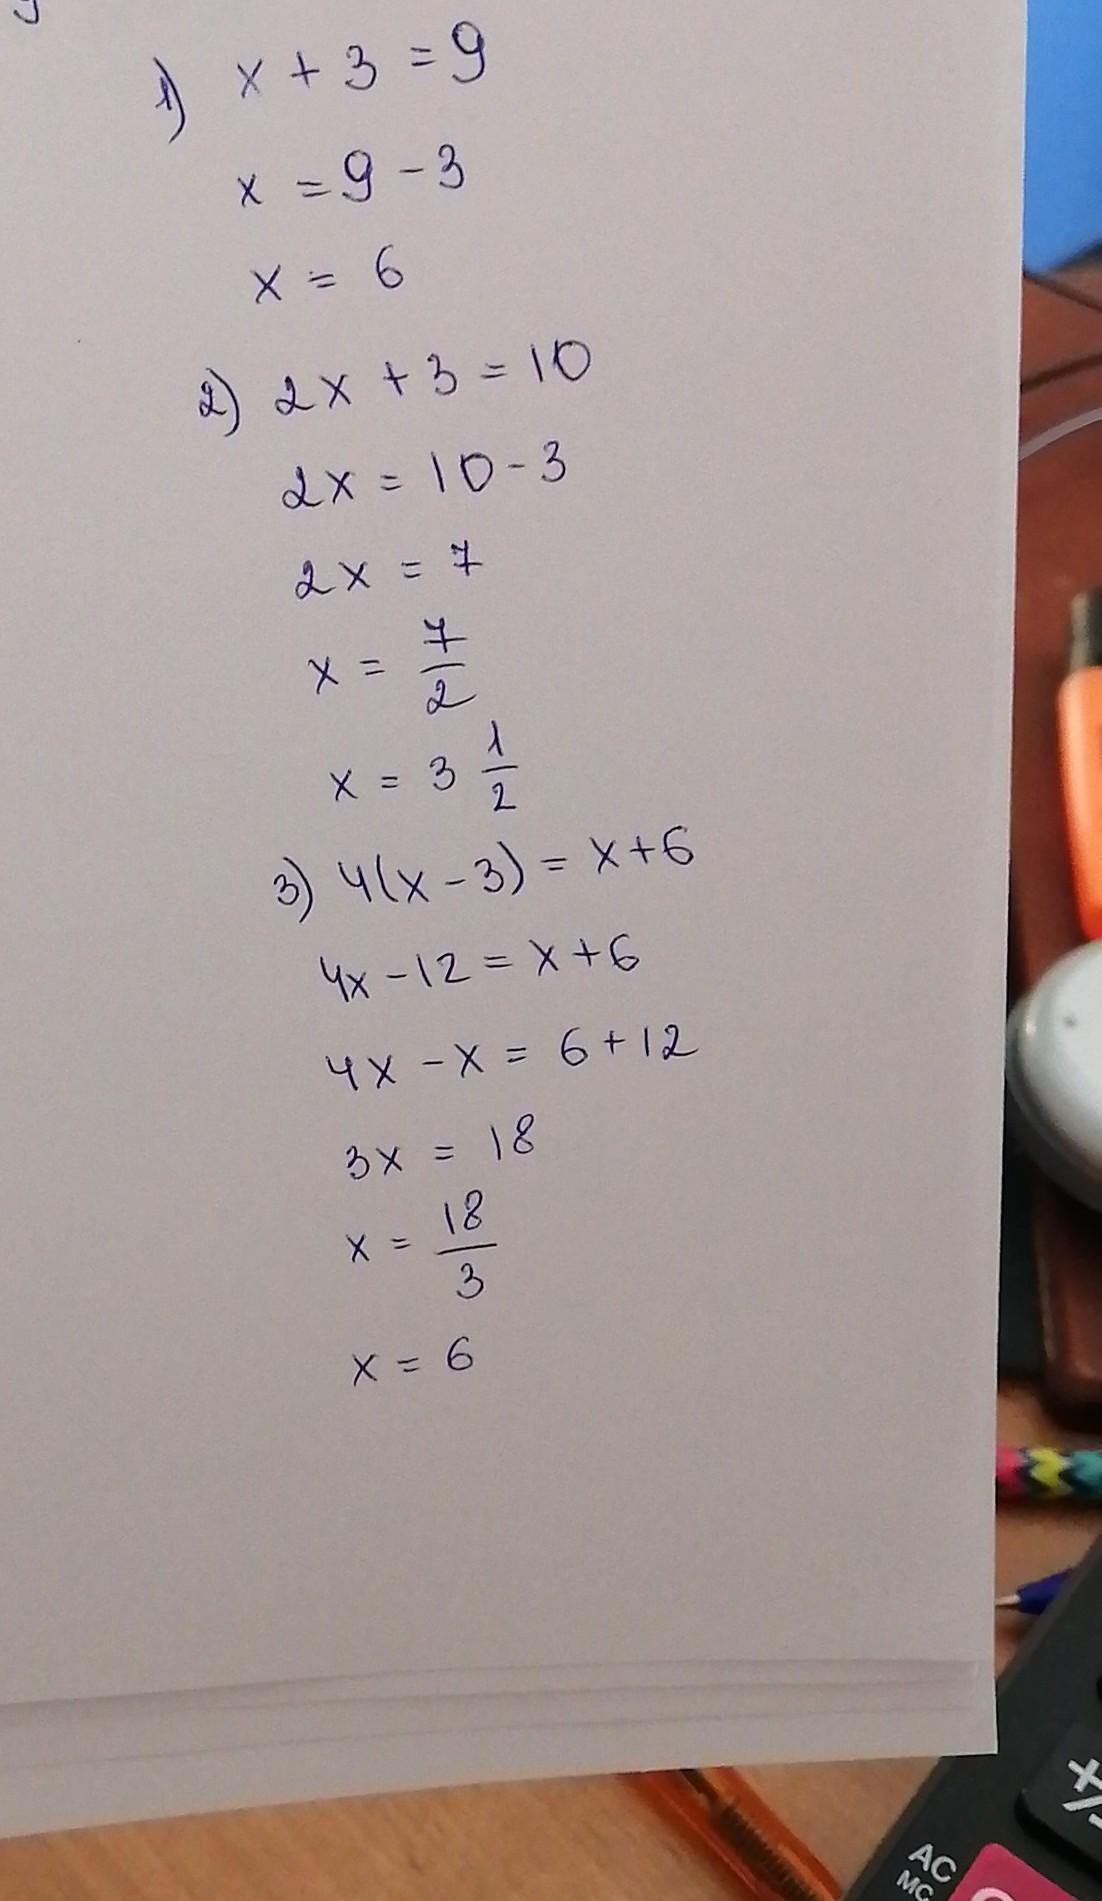 1) x + 3 = 9
x = 9 - 3
x = 6
2) 2x + 3 = 10
2x = 10 - 3
2x = 7
x = 7/2
x = 3 1/2
3) 4(x - 3) = x + 6
4x - 12 = x + 6
4x - x = 6 + 12
3x = 18
x = 18/3
x = 6
+/-
AC
MC